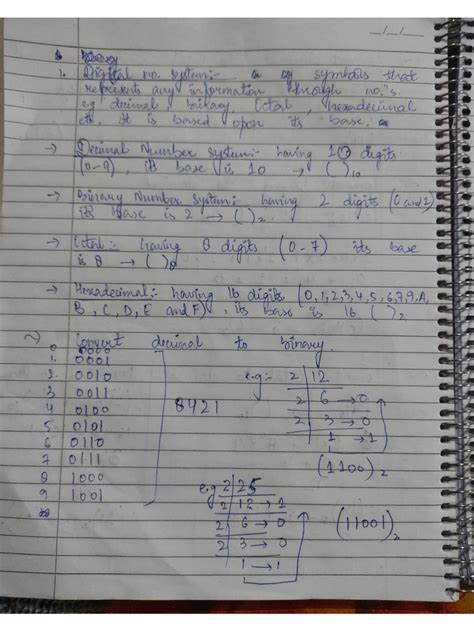 binary
1. Digital no. system:- symbols that
represents any information through no's.
e.g decimal, binary, Octal, hexadecimal
etc. It is based upon its base.
→ Decimal Number system:- having 10 digits
(0-9), its base is 10 → ( )10
→ Binary Number system: having 2 digits (0 and 1)
its base is 2 → ( )2.
→ Octal:- having 8 digits (0-7) its base
is 8 → ( )8
→ Hexadecimal:- having 16 digits (0,1,2,3,4,5,6,7,9,A,
B, C, D, E and F), its base is 16 ( )2
~) Convert decimal to binary.
0 0000
1. 0001
2. 0010
3 0011
4 0100
5 0101
6 0110
7 0111
8 1000
9 1001
10
8421
e.g:- 2 | 12
2 | 6 → 0
2 | 3 → 0
1 → 1
(1100)2
e.g 2 | 25
2 | 12 → 1
2 | 6 → 0
2 | 3 → 0
1 → 1
(11001)2